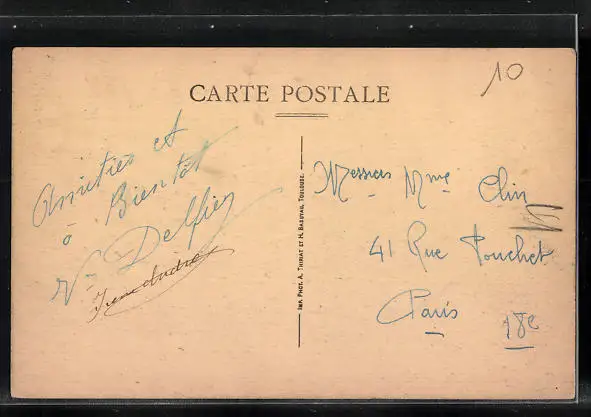 CARTE POSTALE
10
Amitiés et
à Bientôt
Delfieu
IMP. PHOT. A. THIRIAT ET H. BASUYAU, TOULOUSE.
Messieurs Mme Clin
41 Rue Pouchet
Paris
18e